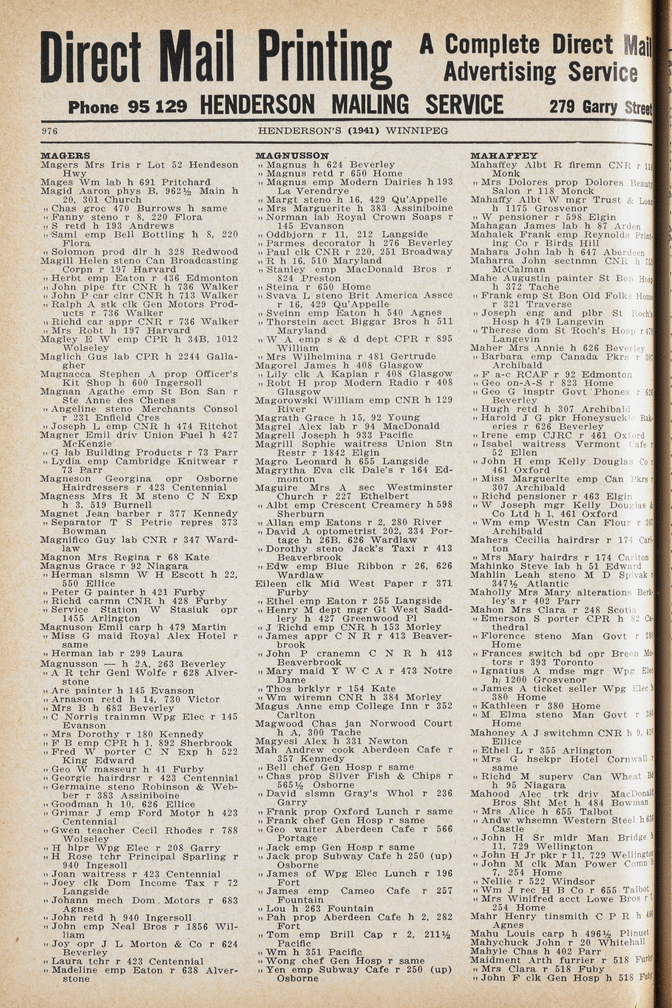 Direct Mail Printing
A Complete Direct Mail
Advertising Service
Phone 95 129 HENDERSON MAILING SERVICE 279 Garry Street
976 HENDERSON'S (1941) WINNIPEG
MAGERS
Magers Mrs Iris r Lot 52 Hendeson
Hwy
Mages Wm lab h 691 Pritchard
Magid Aaron phys B, 962½ Main h
20, 301 Church
„ Chas groc 470 Burrows h same
„ Fanny steno r 8, 220 Flora
„ S retd h 193 Andrews
„ Saml emp Bell Bottling h 8, 220
Flora
„ Solomon prod dlr h 328 Redwood
Magill Helen steno Can Broadcasting
Corpn r 197 Harvard
„ Herbt emp Eaton r 436 Edmonton
„ John pipe ftr CNR h 736 Walker
„ John P car clnr CNR h 713 Walker
„ Ralph A stk clk Gen Motors Prod-
ucts r 736 Walker
„ Richd car appr CNR r 736 Walker
„ Mrs Robt h 197 Harvard
Magley E W emp CPR h 34B, 1012
Wolseley
Maglich Gus lab CPR h 2244 Galla-
gher
Magnacca Stephen A prop Officer's
Kit Shop h 600 Ingersoll
Magnan Agathe emp St Bon San r
Ste Anne des Chenes
„ Angeline steno Merchants Consol
r 231 Enfield Cres
„ Joseph L emp CNR h 474 Ritchot
Magner Emil driv Union Fuel h 427
McKenzie
„ G lab Building Products r 73 Parr
„ Lydia emp Cambridge Knitwear r
73 Parr
Magneson Georgina opr Osborne
Hairdressers r 423 Centennial
Magness Mrs R M steno C N Exp
h 3, 519 Burnell
Magnet Jean barber r 377 Kennedy
„ Separator T S Petrie repres 373
Bowman
Magnifico Guy lab CNR r 347 Ward-
law
Magnon Mrs Regina r 68 Kate
Magnus Grace r 92 Niagara
„ Herman slsmn W H Escott h 22,
550 Ellice
„ Peter G painter h 421 Furby
„ Richd carmn CNR h 428 Furby
„ Service Station W Stasiuk opr
1455 Arlington
Magnuson Emil carp h 479 Martin
„ Miss G maid Royal Alex Hotel r
same
„ Herman lab r 299 Laura
Magnusson — h 2A, 263 Beverley
„ A R tchr Genl Wolfe r 628 Alver-
stone
„ Are painter h 145 Evanson
„ Arnason retd h 14, 730 Victor
„ Mrs B h 683 Beverley
„ C Norris trainmn Wpg Elec r 145
Evanson
„ Mrs Dorothy r 180 Kennedy
„ F B emp CPR h 1, 892 Sherbrook
„ Fred W porter C N Exp h 522
King Edward
„ Geo W masseur h 41 Furby
„ Georgie hairdrsr r 423 Centennial
„ Germaine steno Robinson & Web-
ber r 383 Assiniboine
„ Goodman h 10, 626 Ellice
„ Grimar J emp Ford Motor h 423
Centennial
„ Gwen teacher Cecil Rhodes r 788
Wolseley
„ H hlpr Wpg Elec r 208 Garry
„ H Rose tchr Principal Sparling r
940 Ingersoll
„ Joan waitress r 423 Centennial
„ Joey clk Dom Income Tax r 72
Langside
„ Johann mech Dom Motors r 683
Agnes
„ John retd h 940 Ingersoll
„ John emp Neal Bros r 1856 Wil-
liam
„ Joy opr J L Morton & Co r 624
Beverley
„ Laura tchr r 423 Centennial
„ Madeline emp Eaton r 638 Alver-
stone
MAGNUSSON
„ Magnus h 624 Beverley
„ Magnus retd r 650 Home
„ Magnus emp Modern Dairies h 193
La Verendrye
„ Margt steno h 16, 429 Qu'Appelle
„ Mrs Marguerite h 383 Assiniboine
„ Norman lab Royal Crown Soaps r
145 Evanson
„ Oddbjorn r 11, 212 Langside
„ Parmes decorator h 276 Beverley
„ Paul clk CNR r 220, 251 Broadway
„ R h 16, 510 Maryland
„ Stanley emp MacDonald Bros r
824 Preston
„ Steina r 650 Home
„ Svava L steno Brit America Assce
r 16, 429 Qu'Appelle
„ Sveinn emp Eaton h 540 Agnes
„ Thorstein acct Biggar Bros h 511
Maryland
„ W A emp s & d dept CPR r 895
William
„ Mrs Wilhelmina r 481 Gertrude
Magorel James h 408 Glasgow
„ Lily clk A Kaplan r 408 Glasgow
„ Robt H prop Modern Radio r 408
Glasgow
Magorowski William emp CNR h 129
River
Magrath Grace h 15, 92 Young
Magrel Alex lab r 94 MacDonald
Magrell Joseph h 933 Pacific
Magrill Sophie waitress Union Stn
Restr r 1842 Elgin
Magro Leonard h 655 Langside
Magrytha Eva clk Dale's r 164 Ed-
monton
Maguire Mrs A sec Westminster
Church r 227 Ethelbert
„ Albt emp Crescent Creamery h 598
Sherburn
„ Allan emp Eatons r 2, 280 River
„ David A optometrist 202, 234 Por-
tage h 26B, 626 Wardlaw
„ Dorothy steno Jack's Taxi r 413
Beaverbrook
„ Edw emp Blue Ribbon r 26, 626
Wardlaw
Eileen clk Mid West Paper r 371
Furby
„ Ethel emp Eaton r 255 Langside
„ Henry M dept mgr Gt West Sadd-
lery h 427 Greenwood Pl
„ J Richd emp CNR h 153 Morley
„ James appr C N R r 413 Beaver-
brook
„ John P cranemn C N R h 413
Beaverbrook
„ Mary maid Y W C A r 473 Notre
Dame
„ Thos brklyr r 154 Kate
„ Wm wiremn CNR h 384 Morley
Magus Anne emp College Inn r 352
Carlton
Magwood Chas jan Norwood Court
h A, 300 Tache
Magyesi Alex h 331 Newton
Mah Andrew cook Aberdeen Cafe r
357 Kennedy
„ Bell chef Gen Hosp r same
„ Chas prop Silver Fish & Chips r
565½ Osborne
„ David slsmn Gray's Whol r 236
Garry
„ Frank prop Oxford Lunch r same
„ Frank chef Gen Hosp r same
„ Geo waiter Aberdeen Cafe r 566
Portage
„ Jack emp Gen Hosp r same
„ Jack prop Subway Cafe h 250 (up)
Osborne
„ James of Wpg Elec Lunch r 196
Fort
„ James emp Cameo Cafe r 257
Fountain
„ Lou h 263 Fountain
„ Pah prop Aberdeen Cafe h 2, 282
Fort
„ Tom emp Brill Cap r 2, 211½
Pacific
„ Wm h 351 Pacific
„ Wong chef Gen Hosp r same
„ Yen emp Subway Cafe r 250 (up)
Osborne
MAHAFFEY
Mahaffey Albt R firemn CNR r
Monk
„ Mrs Dolores prop Dolores Beauty
Salon r 118 Monck
Mahaffy Albt W mgr Trust & Loan
h 1175 Grosvenor
„ W pensioner r 598 Elgin
Mahagan James lab h 87 Arden
Mahalek Frank emp Reynolds Print-
ing Co r Birds Hill
Mahara John lab h 647 Aberdeen
Maharra John sectmn CNR h
McCalman
Mahe Augustin painter St Bon Hosp
h 372 Tache
„ Frank emp St Bon Old Folks Home
r 321 Traverse
„ Joseph eng and plbr St Roch's
Hosp h 479 Langevin
„ Therese dom St Roch's Hosp r 479
Langevin
Maher Mrs Annie h 626 Beverley
„ Barbara emp Canada Pkrs r 307
Archibald
„ F a-c RCAF r 92 Edmonton
„ Geo on-A-S r 823 Home
„ Geo G insptr Govt Phones r 626
Beverley
„ Hugh retd h 307 Archibald
„ Harold J G pdlr Honeysuckle Bak-
eries r 626 Beverley
„ Irene emp CJRC r 461 Oxford
„ Isabel waitress Vermont Cafe r
52 Ellen
„ John H emp Kelly Douglas Co r
461 Oxford
„ Miss Marguerite emp Can Pkrs r
307 Archibald
„ Richd pensioner r 463 Elgin
„ W Joseph mgr Kelly Douglas &
Co Ltd h 1, 461 Oxford
„ Wm emp Westn Can Flour r 307
Archibald
Mahers Cecilia hairdrsr r 174 Carl-
ton
„ Mrs Mary hairdrs r 174 Carlton
Mahinko Steve lab h 51 Edward
Mahlin Leah steno M D Spivak r
347½ Atlantic
Maholly Mrs Mary alterations Berk-
ley's r 402 Parr
Mahon Mrs Clara r 248 Scotia
„ Emerson S porter CPR h 82 Ca-
thedral
„ Florence steno Man Govt r 380
Home
„ Frances switch bd opr Breen Mo-
tors r 393 Toronto
„ Ignatius A mdse mgr Wpg Elec
h 1200 Grosvenor
„ James A ticket seller Wpg Elec h
380 Home
„ Kathleen r 380 Home
„ M Elma steno Man Govt r 380
Home
Mahoney A J switchmn CNR h 9,
Ellice
„ Ethel L r 355 Arlington
„ Mrs G hsekpr Hotel Cornwall r
same
„ Richd M superv Can Wheat Bd
h 95 Niagara
Mahood Alec trk driv MacDonald
Bros Sht Met h 484 Bowman
„ Mrs Alice h 655 Talbot
„ Andw whsemn Western Steel h
Castle
„ John H Sr mldr Man Bridge h
11, 729 Wellington
„ John H Jr pkr r 11, 729 Wellington
„ John M clk Man Power Comn h
7, 254 Home
„ Nellie r 522 Windsor
„ Wm J rec H B Co r 655 Talbot
„ Mrs Winifred acct Lowe Bros r 7
254 Home
Mahr Henry tinsmith C P R h
Agnes
Mahu Louis carp h 496½ Plinuet
Mahychuck John r 20 Whitehall
Mahyle Chas h 402 Parr
Maidment Arth furrier r 518 Furby
„ Mrs Clara r 518 Fuby
„ John F clk Gen Hosp h 518 Fuby